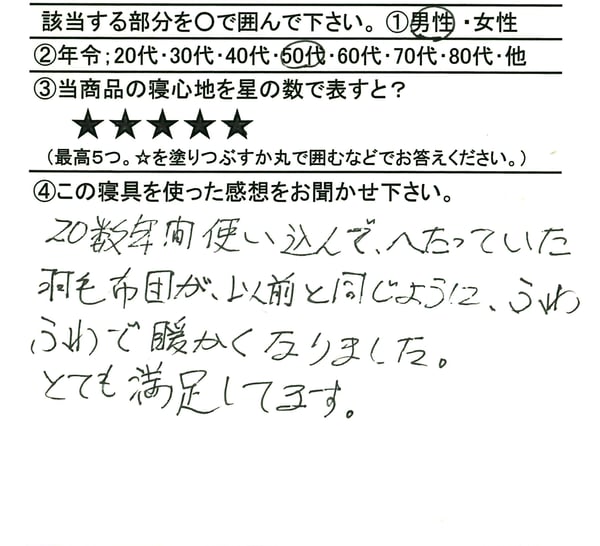 該当する部分を○で囲んで下さい。①男性・女性
②年令;20代・30代・40代・50代・60代・70代・80代・他
③当商品の寝心地を星の数で表すと?
★★★★★
(最高5つ。☆を塗りつぶすか丸で囲むなどでお答えください。)
④この寝具を使った感想をお聞かせ下さい。
20数年間使い込んで、へたっていた
羽毛布団が、以前と同じように、ふわ
ふわで暖かくなりました。
とても満足してます。